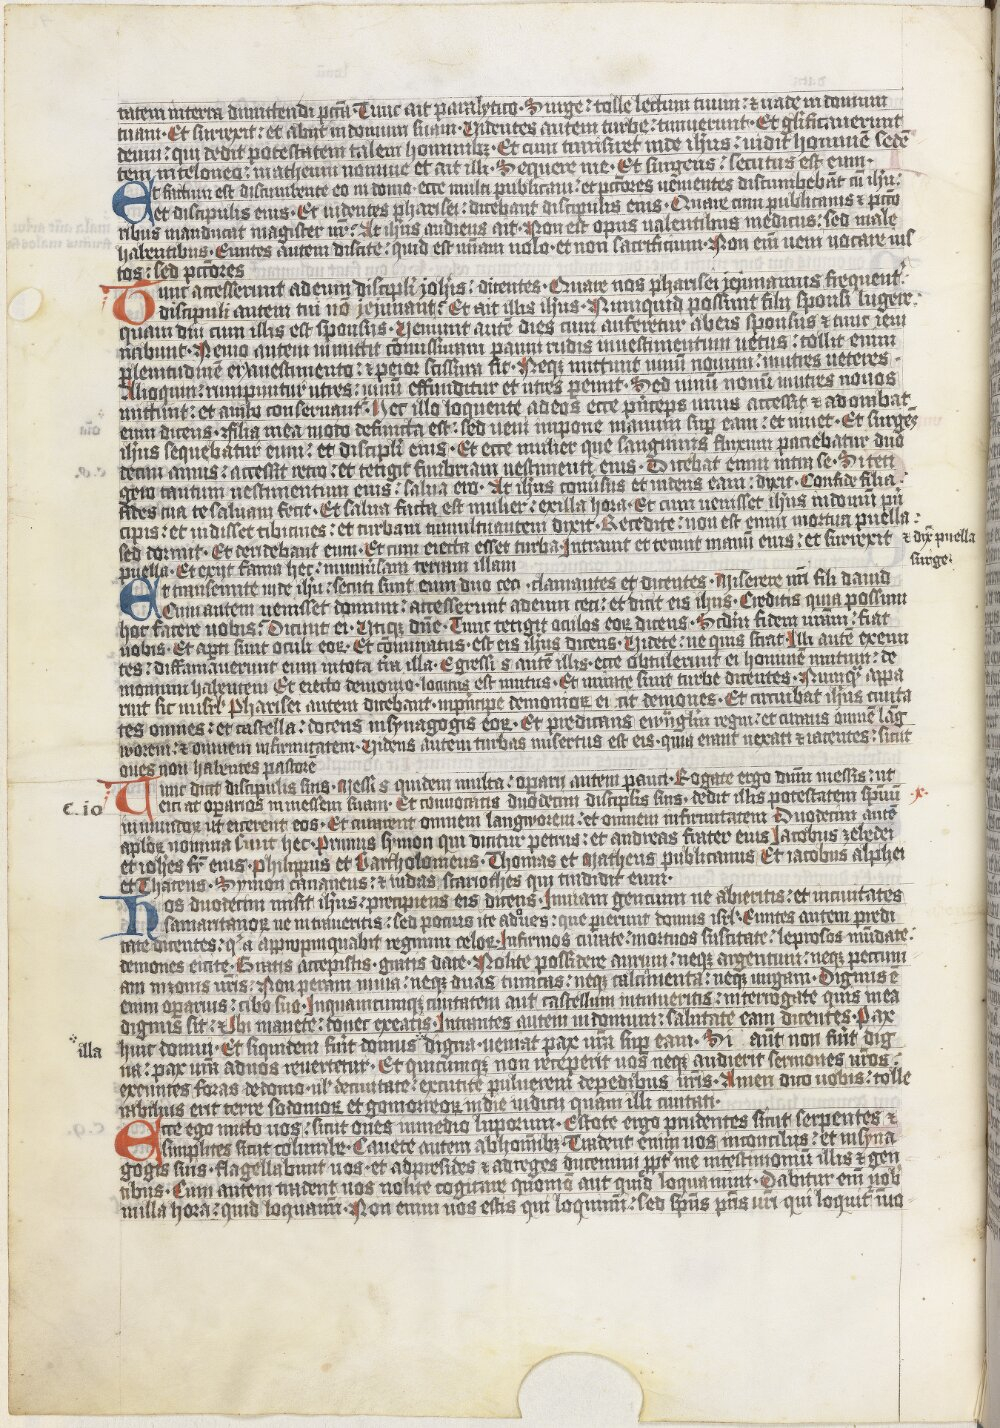 tatem in terra dimittendi pctā Tunc ait paralytico · Surge : tolle lectum tuum : ⁊ uade in domum
tuam · Et surrexit : et abiit in domum suam · Uidentes autem turbe : timuerunt · Et glificauerunt
deum : qui dedit potestatem talem hominibꝫ · Et cum transiret inde ihus : uidit hominē sedē
tem in teloneo : matheum nomine et ait illi · Sequere me · Et surgens : secutus est eum ·
Et factum est discumbente eo in domo · ecce multi publicani : et pctōres uenientes discumbebāt cū ihu :
et discipulis eius · Et uidentes pharisei : dicebant discipulis eius · Quare cum publicanis ⁊ pctō
ribus manducat magister ur̄ : At ihus audiens ait · Non est opus ualentibus medicus : sed male
habentibus · Euntes autem discite : quid est m̄iam uolo · et non sacrificium · Non em̄ ueni uocare ius
tos : sed pctōres
Tunc accesserunt ad eum discipli johis : dicentes · Quare nos pharisei jejunamus frequent :
discipuli autem tui nō jejunant : Et ait illis ihus · Nunquid possunt filii sponsi lugere :
quam diu cum illis est sponsus · Uenient autē dies cum auferetur ab eis sponsus ⁊ tunc ieiu
nabunt · Nemo autem inmittit cōmissuram panni rudis in uestimentum uetus : tollit enim
plenitudinē ei⁹ a uestimento : ⁊ peior scissura fit · Neqꝫ mittunt uinū nouum : in utres ueteres ·
Alioquin : rumpuntur utres : uinū effunditur et utres pereūt · Sed uinū nouū in utres nouos
mittunt : et ambo conseruant · Hec illo loquente ad eos ecce prīceps unus accessit ⁊ adorabat
eum dicens · Filia mea modo defuncta est : sed ueni impone manum sup eam : et uiuet · Et surgēs
ihus sequebatur eum : et discipli eius · Et ecce mulier que sanguinis fluxum patiebatur duo
decim annis : accessit retro : et tetigit fimbriam uestimenti eius · Dicebat enim intra se · Si teti
gero tantum uestimentum eius : salua ero · At ihus conuersus et uidens eam : dixit · Confide filia :
fides tua te saluam fecit · Et salua facta est mulier : ex illa hora · Et cum uenisset ihus in domū prī
cipis : et uidisset tibicines : et turbam tumultuantem dixit · Recedite : non est enim mortua puella :
sed dormit · Et deridebant eum · Et cum eiecta esset turba · Intrauit et tenuit manū eius : et surrexit
⁊ dix̄ puella
surge :
puella · Et exiit fama hec : in uniūsam terram illam
Et transeunte inde ihu : secuti sunt eum duo ceci · clamantes et dicentes · Miserere nri fili dauid
Cum autem uenisset domum : accesserunt ad eum ceci : et dicit eis ihus · Creditis quia possum
hoc facere uobis : Dicunt ei · Utiqꝫ dn̄e · Tunc tetigit oculos eoꝝ dicens · Scdm̄ fidem uram : fiat
uobis · Et apti sunt oculi eoꝝ · Et cōminatus · est eis ihus dicens · Uidete : ne quis sciat · Illi autē exeun
tes : diffamauerunt eum in tota tra illa · Egressi s̄ autē illis · ecce obtulerunt ei hominē mutum : de
monium habentem Et eiecto demonio · locutus est mutus · Et mirate sunt turbe dicentes · Nunqᵃ appa
ruit sic in isrl · Pharisei autem dicebant · in principe demonioꝝ eicit demones · Et circuibat ihus ciuita
tes omnes : et castella : docens in synagogis eoꝝ · Et predicans ewnglm̄ regni : et curans omnē lāg
worem : ⁊ omnem infirmitatem · Uidens autem turbas misertus est eis · quia erant uexati ⁊ iacentes : sicut
oues non habentes pastorē
Tunc dicit discipulis suis · Messis quidem multa : operarii autem pauci · Rogate ergo dnm̄ messis : ut
C. io
eiciat operarios in messem suam · Et conuocatis duodecim disciplis suis · dedit illis potestatem spūū
· x ·
inmundoꝝ ut eicerent eos · Et curarent omnem langworem : et omnem infirmitatem Duodecim autē
aploꝝ nomina sunt hec · Primus symon qui dicitur petrus : et andreas frater eius Jacobus zebedei
et johes fr̄ eius · Philippus et Bartholomeus · Thomas et Matheus publicanus Et iacobus alphei
et Thateus · Symon cananeus : ⁊ iudas scariothes qui tradidit eum ·
Hos duodecim misit ihus : precipiens eis dicens · In uiam gencium ne abieritis : et in ciuitates
samaritanoꝝ ne intraueritis : sed potius ite ad oues : que pierunt domus isrl · Euntes autem predi
cate dicentes : qᵃ appropinquabit regnum celoꝝ · Infirmos curate : mortuos suscitate : leprosos mūdate :
demones eicite · Gratis accepistis · gratis date · Nolite possidere aurum : neqꝫ argentum : neqꝫ pecuni
am in zonis uris : Non peram in uia : neqꝫ duas tunicas : neqꝫ calciamenta : neqꝫ uirgam · Dignus ē
enim operarius : cibo suo · In quamcumqꝫ ciuitatem aut castellum intraueritis : interrogate quis in ea
dignus sit : ⁊ ibi manete : donec exeatis · Intrantes autem in domum : salutate eam dicentes · Pax
illa
huic domui · Et siquidem fuit domus digna · ueniat pax ura sup eam · Si aūt non fuīt dig
na : pax ura ad uos reuertetur · Et quicumqꝫ non receperit uos neqꝫ audierit sermones uros ·
exeuntes foras de domo · ul' de ciuitate : excutite puluerem de pedibus uris · Amen dico uobis : tolle
rabilius erit terre sodomoꝝ et gomorreoꝝ in die iudicii quam illi ciuitati ·
Ecce ego mitto uos : sicut oues in medio luporum · Estote ergo prudentes sicut serpentes ⁊
simplices sicut columbe · Cauete autem ab homibꝫ · Tradent enim uos in conciliis : et in syna
gogis suis · flagellabunt uos · et ad presides ⁊ ad reges ducemini ppt' me in testimoniū illis ⁊ gen
tibus · Cum autem tradent uos nolite cogitare quomō aut quid loquamini · Dabitur em̄ uob
in illa hora : quid loquam̄ · Non enim uos estis qui loquim̄ : sed spūs pris uri qui loquit' in uo